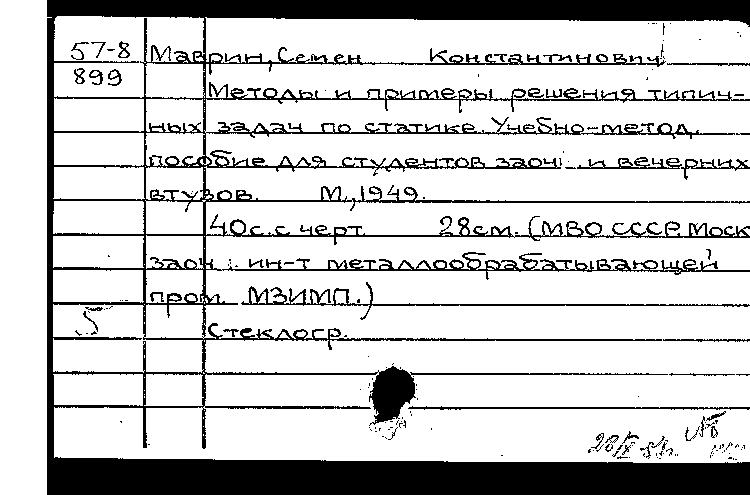 57-8 Маврин, Семен Константинович
899
Методы и примеры решения типич-
ных задач по статике. Учебно-метод.
пособие для студентов заоч. и вечерних
втузов. М., 1949.
40с. с черт. 28см. (МВО СССР. Моск
заоч. ин-т металлообрабатывающей
пром. МЗИМП.)
5 Стеклогр.